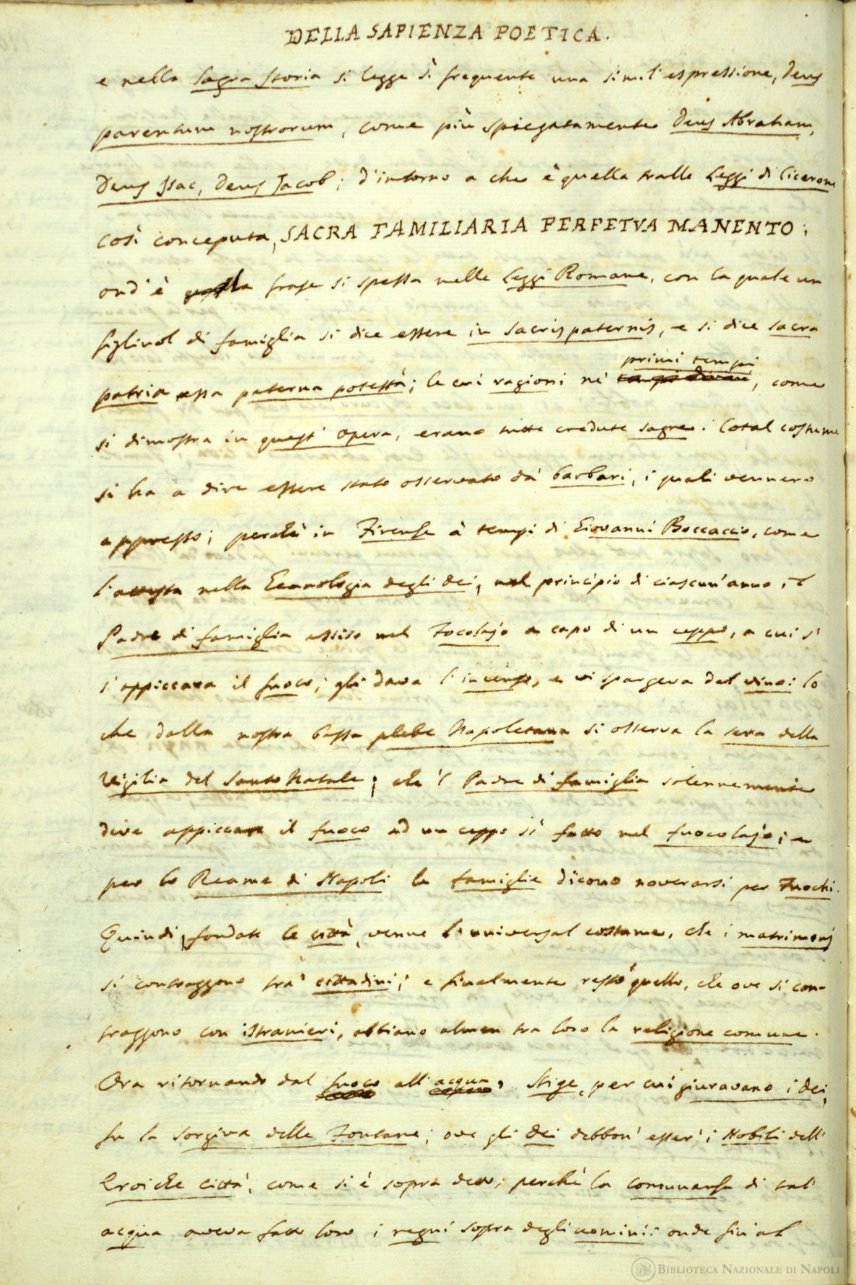 DELLA SAPIENZA POETICA.
e nella Sagra Storia si legge sì frequente una simil' espressione, Deus
parentum nostrorum, come più spiegatamente Deus Abraham,
Deus Isac, Deus Jacob; d'intorno a che è quella tralle Leggi di Cicerone
così conceputa, SACRA FAMILIARIA PERPETVA MANENTO:
ond' è la frase sì spessa nelle Leggi Romane, con la quale un
figliuol di famiglia si dice essere in sacris paternis, e si dice sacra
patria essa paterna potestà; le cui ragioni ne'
primi tempi
, come
si dimostra in quest' opera, erano tutte credute sagre. Cotal costume
si ha a dire essere stato osservato da' barbari, i quali vennero
appresso; perchè in Firenze a' tempi di Giovanni Boccaccio, come
l'attesta nella Geanologia degli dei, nel principio di ciascun'anno, il
Padre di famiglia assiso nel Focolajo a capo di un ceppo, a cui s'
s'appiccava il fuoco; gli dava l'incenso, e vi spargeva del vino: lo
che dalla nostra bassa plebe Napoletana si osserva la sera della
Vigilia del Santo Natale; che 'l Padre di famiglia solennemente
dive appiccare il fuoco ad un ceppo sì fatto nel fuocolajo; e
per lo Reame di Napoli le famiglie dicono noverarsi per Fuochi.
Quindi, fondate le città, venne l'universal costume, che i matrimonj
si contraggono tra' cittadini; e finalmente restò quello, che ove si con-
traggono con istranieri, abbiano almen tra loro la religione comune.
Ora ritornando dal fuoco all'acqua, Stige, per cui giuravano i dei,
fu la sorgiva delle Fontane; ove gli dei debbon' esser' i Nobili dell'
Eroiche città, come si è sopra detto; perchè la comunanza di tal'
acqua aveva fatto loro i regni sopra degli uomini: onde fin'al
BIBLIOTECA NAZIONALE DI NAPOLI